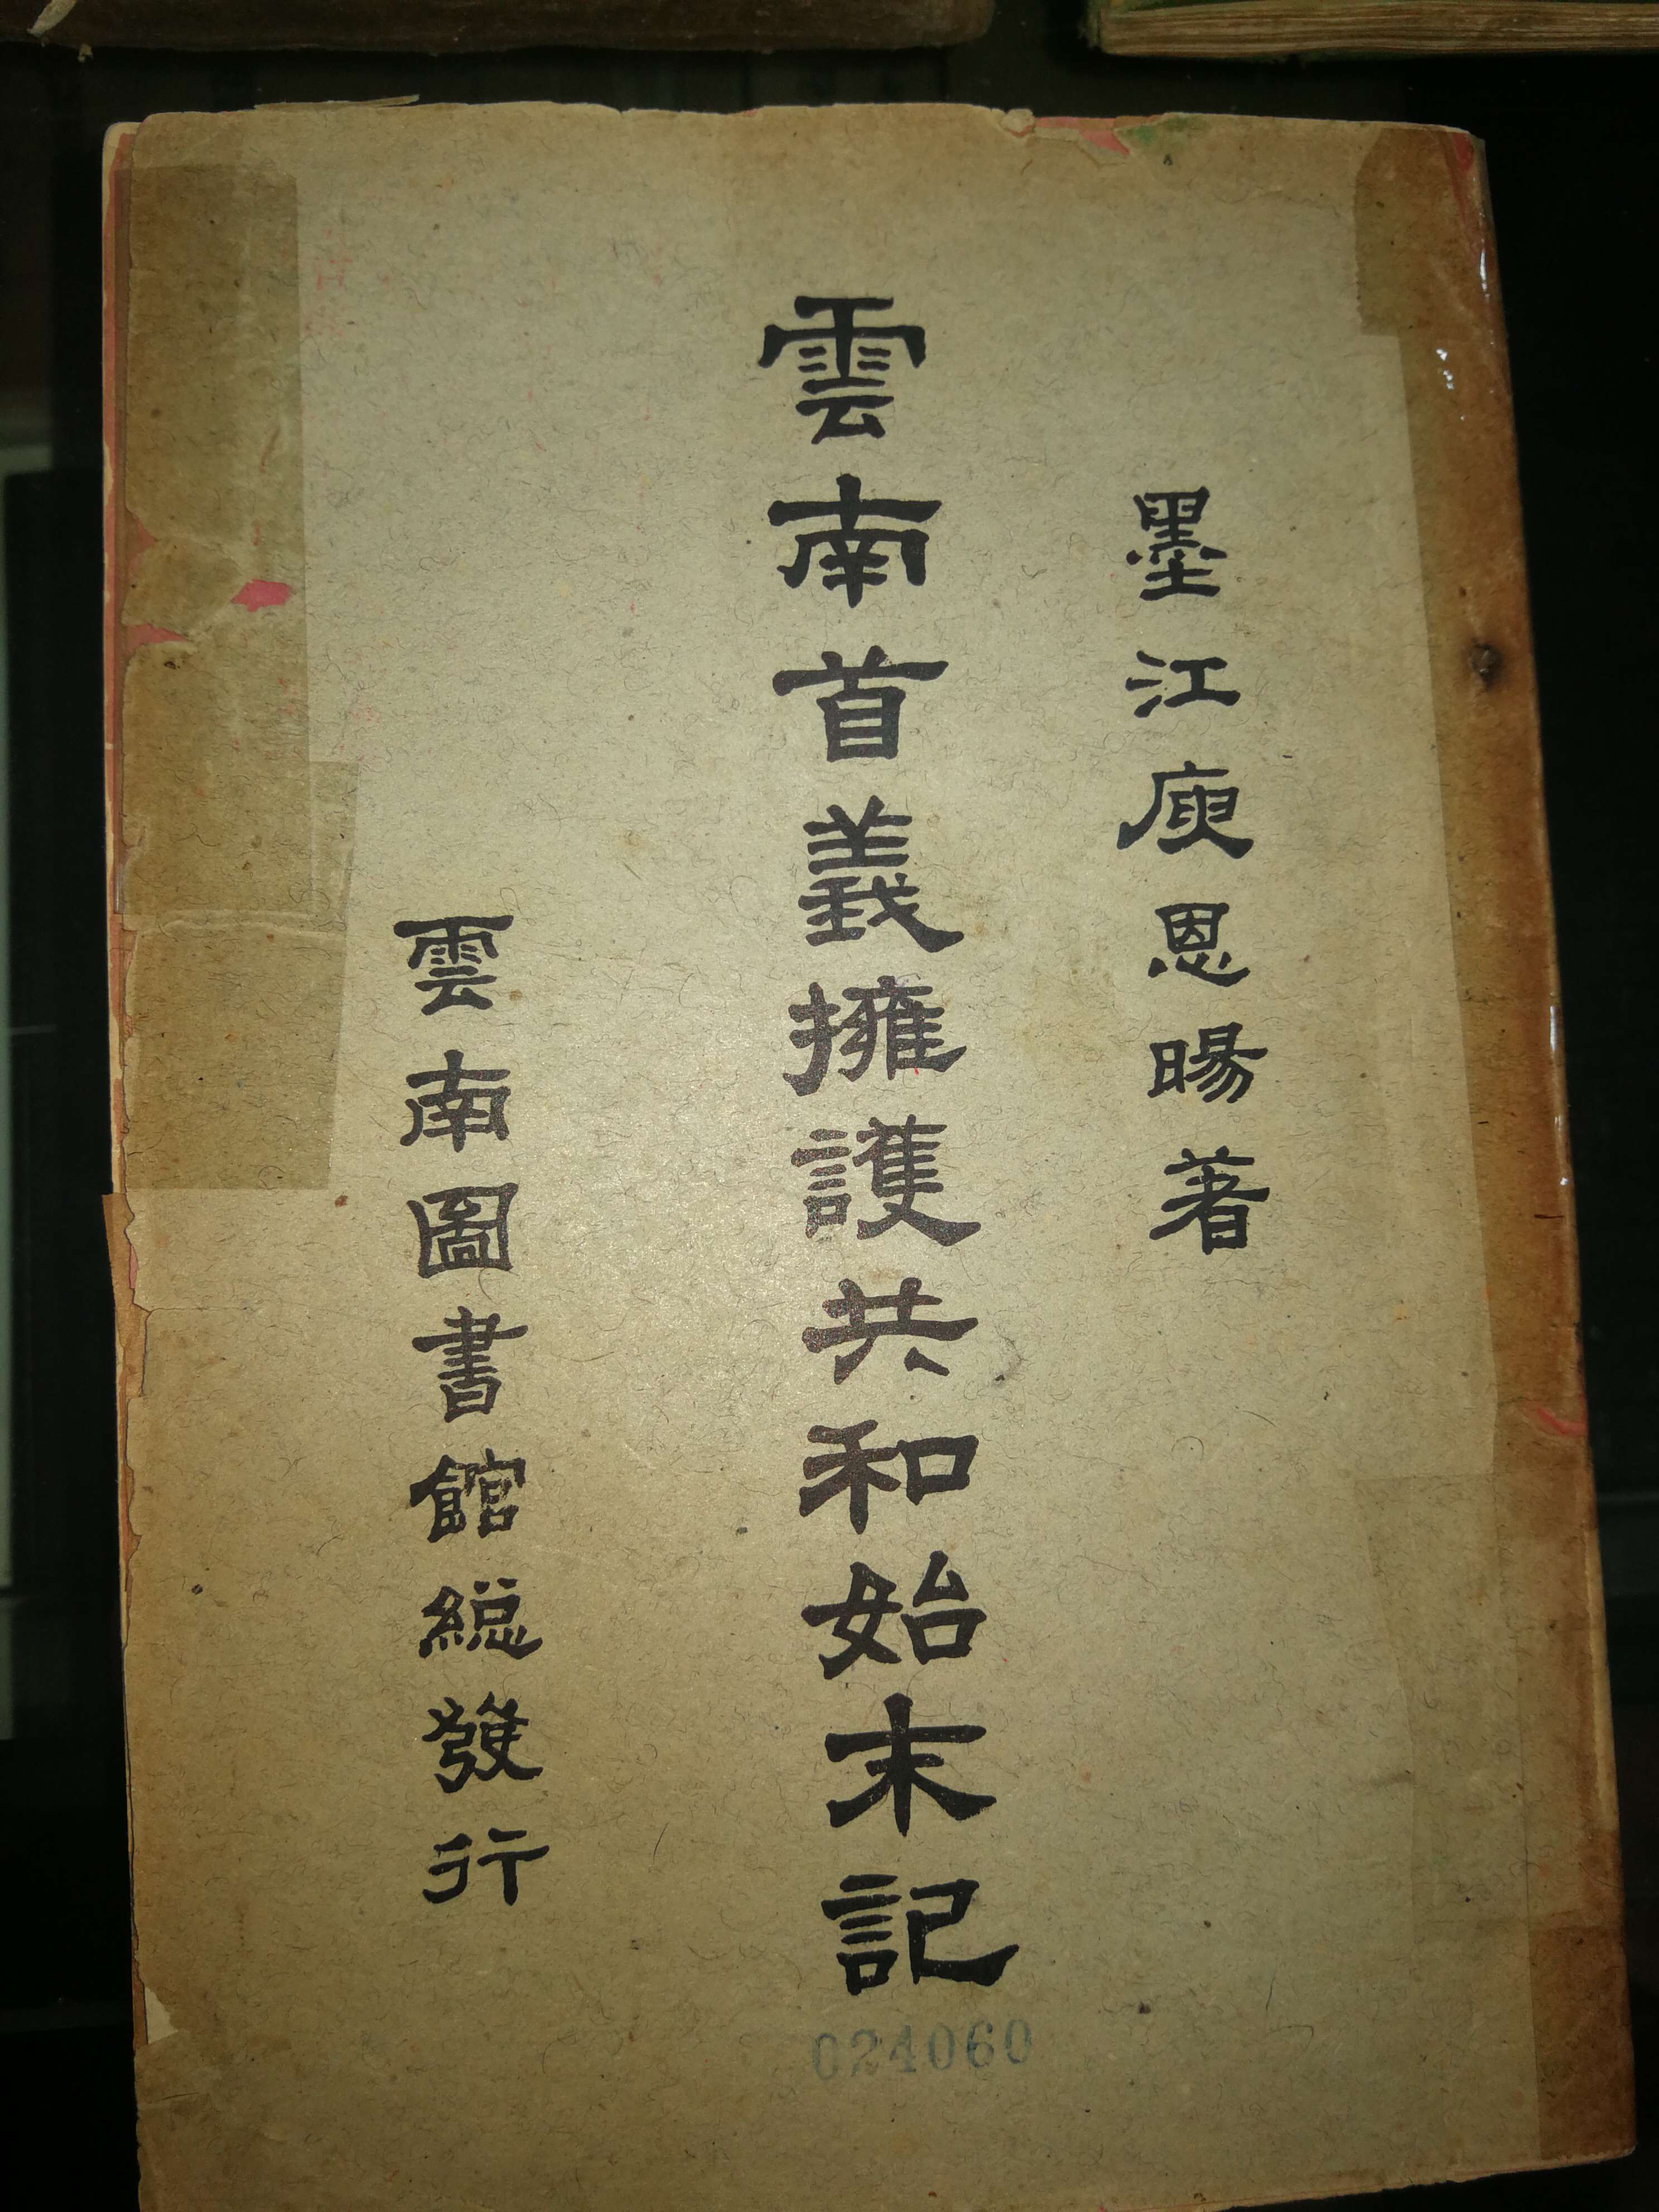 墨江庾恩暘著
雲南首義擁護共和始末記
雲南圖書館総發行
024060